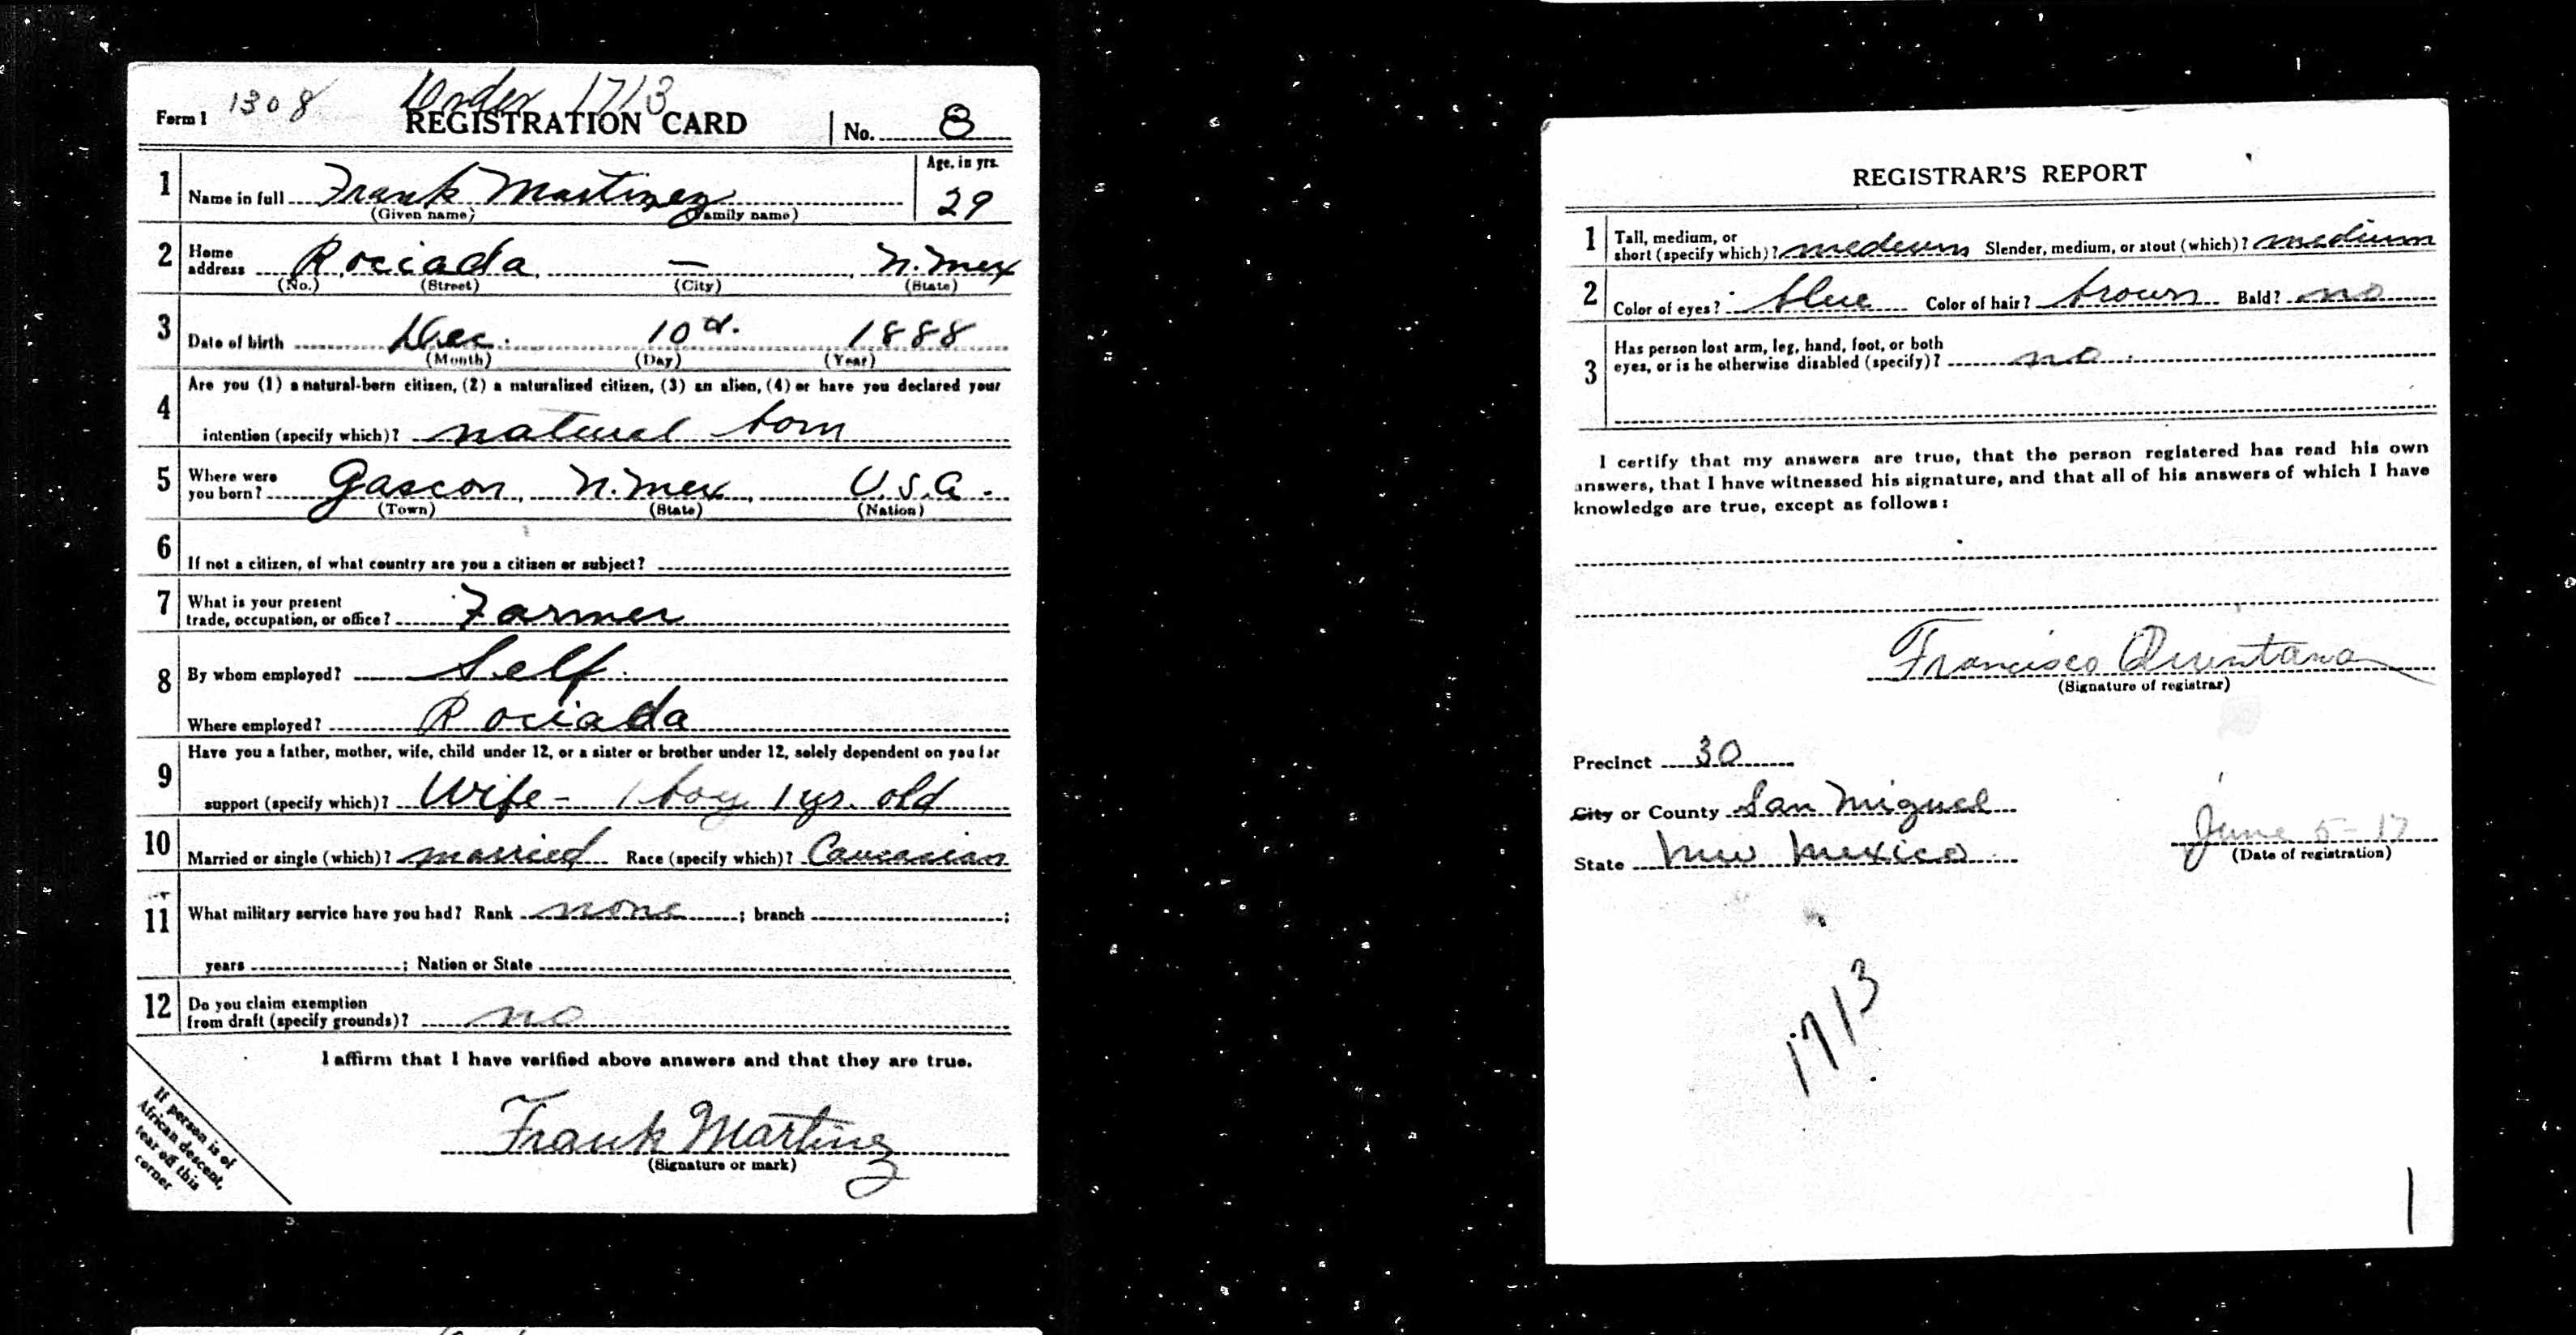 Form 1 1308 Order 1713
REGISTRATION CARD No. 8
1 Name in full Frank Martinez Age, in yrs. 29
(Given name) (Family name)
2 Home address Rociada, — , N. Mex
(No.) (Street) (City) (State)
3 Date of birth Dec. 10 d. 1888
(Month) (Day) (Year)
Are you (1) a natural-born citizen, (2) a naturalized citizen, (3) an alien, (4) or have you declared your
4 intention (specify which)? natural born
5 Where were you born? Gascon, N. Mex, U.S.A.
(Town) (State) (Nation)
6 If not a citizen, of what country are you a citizen or subject?
7 What is your present
trade, occupation, or office? Farmer
8 By whom employed? Self.
Where employed? Rociada
Have you a father, mother, wife, child under 12, or a sister or brother under 12, solely dependent on you for
9 support (specify which)? Wife - 1 boy 1 yr. old
10 Married or single (which)? married Race (specify which)? Caucasian
11 What military service have you had? Rank none ; branch ;
years ; Nation or State
12 Do you claim exemption
from draft (specify grounds)? no
I affirm that I have verified above answers and that they are true.
Frank Martinez
(Signature or mark)
If person is of
African descent,
tear off this
corner
REGISTRAR'S REPORT
1 Tall, medium, or
short (specify which)? medium Slender, medium, or stout (which)? medium
2 Color of eyes? blue Color of hair? brown Bald? no
3 Has person lost arm, leg, hand, foot, or both
eyes, or is he otherwise disabled (specify)? no.
I certify that my answers are true, that the person registered has read his own
answers, that I have witnessed his signature, and that all of his answers of which I have
knowledge are true, except as follows:
Francisco Quintana
(Signature of registrar)
Precinct 30
City or County San Miguel
State New Mexico
June 5-17
(Date of registration)
1713